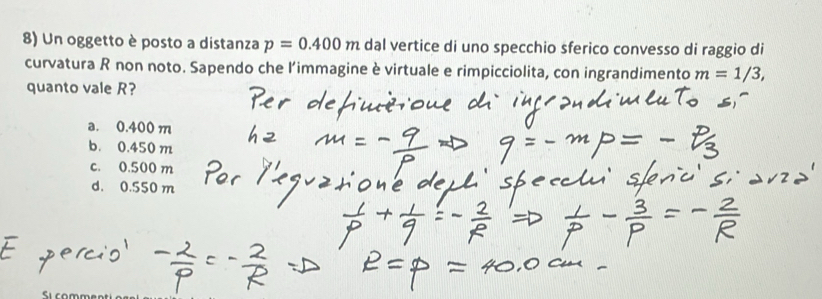 8) Un oggetto è posto a distanza p = 0.400 m dal vertice di uno specchio sferico convesso di raggio di
curvatura R non noto. Sapendo che l'immagine è virtuale e rimpicciolita, con ingrandimento m = 1/3,
quanto vale R?
Per definizione di ingrandimento si
a. 0.400 m
b. 0.450 m
c. 0.500 m
d. 0.550 m
ha m = - q/p => q = - m p = - p/3
Per l'equazione degli specchi sferici si avrà
1/p + 1/q = - 2/R => 1/p - 3/p = - 2/R
E perciò - 2/p = - 2/R => R = p = 40.0 cm -
Si commenti